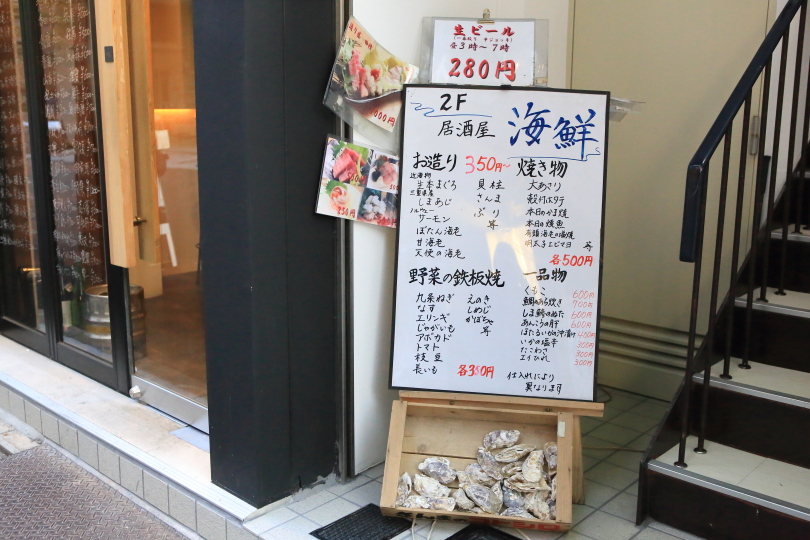 生ビール
昼3時〜7時
280円
2F
居酒屋 海鮮
お造り 350円〜
近海物
生本まぐろ
三重県産
しまあじ
ノルウェー
サーモン
ぼたん海老
甘海老
天使の海老
貝柱
さんま
ぶり
等
焼き物
大あさり
殻付ホタテ
本日のかま焼
本日の焼魚
有頭海老の塩焼
明太子とじマヨ 等
各500円
野菜の鉄板焼
九条ねぎ
なす
エリンギ
じゃがいも
アボカド
トマト
枝豆
長いも
えのき
しめじ
かぼちゃ
等
各350円
一品物
くもこ 600円
鯛のあら炊き 700円
しま鯵のぬた 600円
あんこうの肝 600円
ほたるいかの沖漬け 400円
いかの塩辛 300円
たこわさ 300円
エイひれ 300円
仕入れにより
異なります